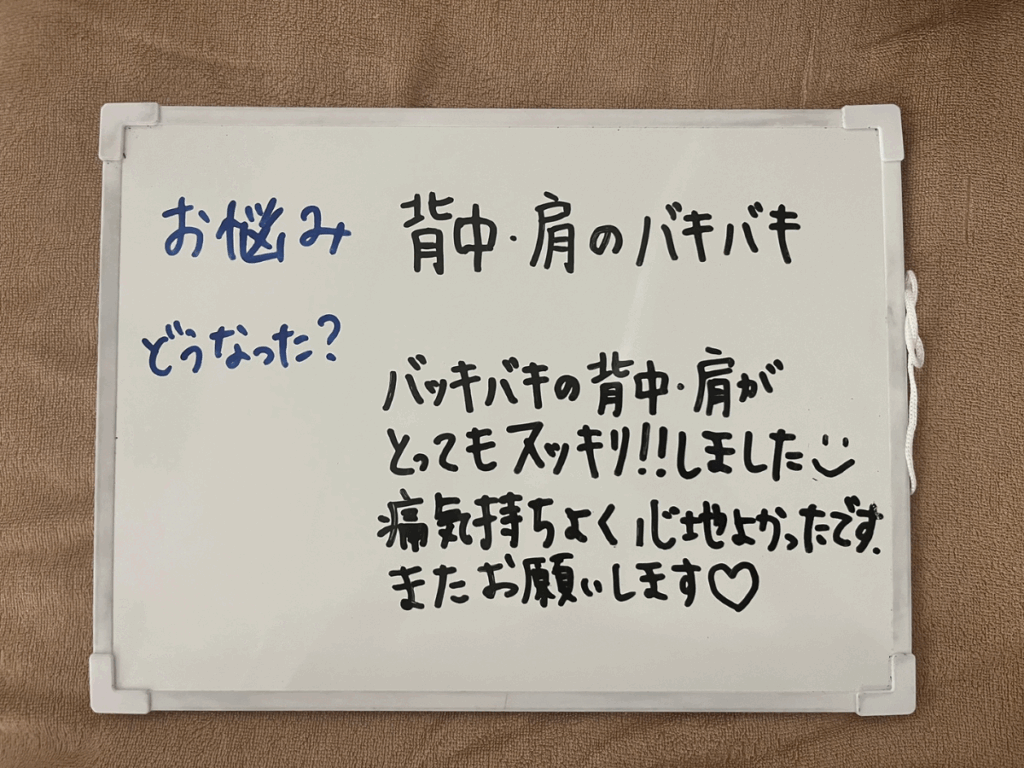 お悩み 背中・肩のバキバキ
どうなった?
バッキバキの背中・肩が
とってもスッキリ!!しました
痛気持ちよく心地よかったです.
またお願いします♡